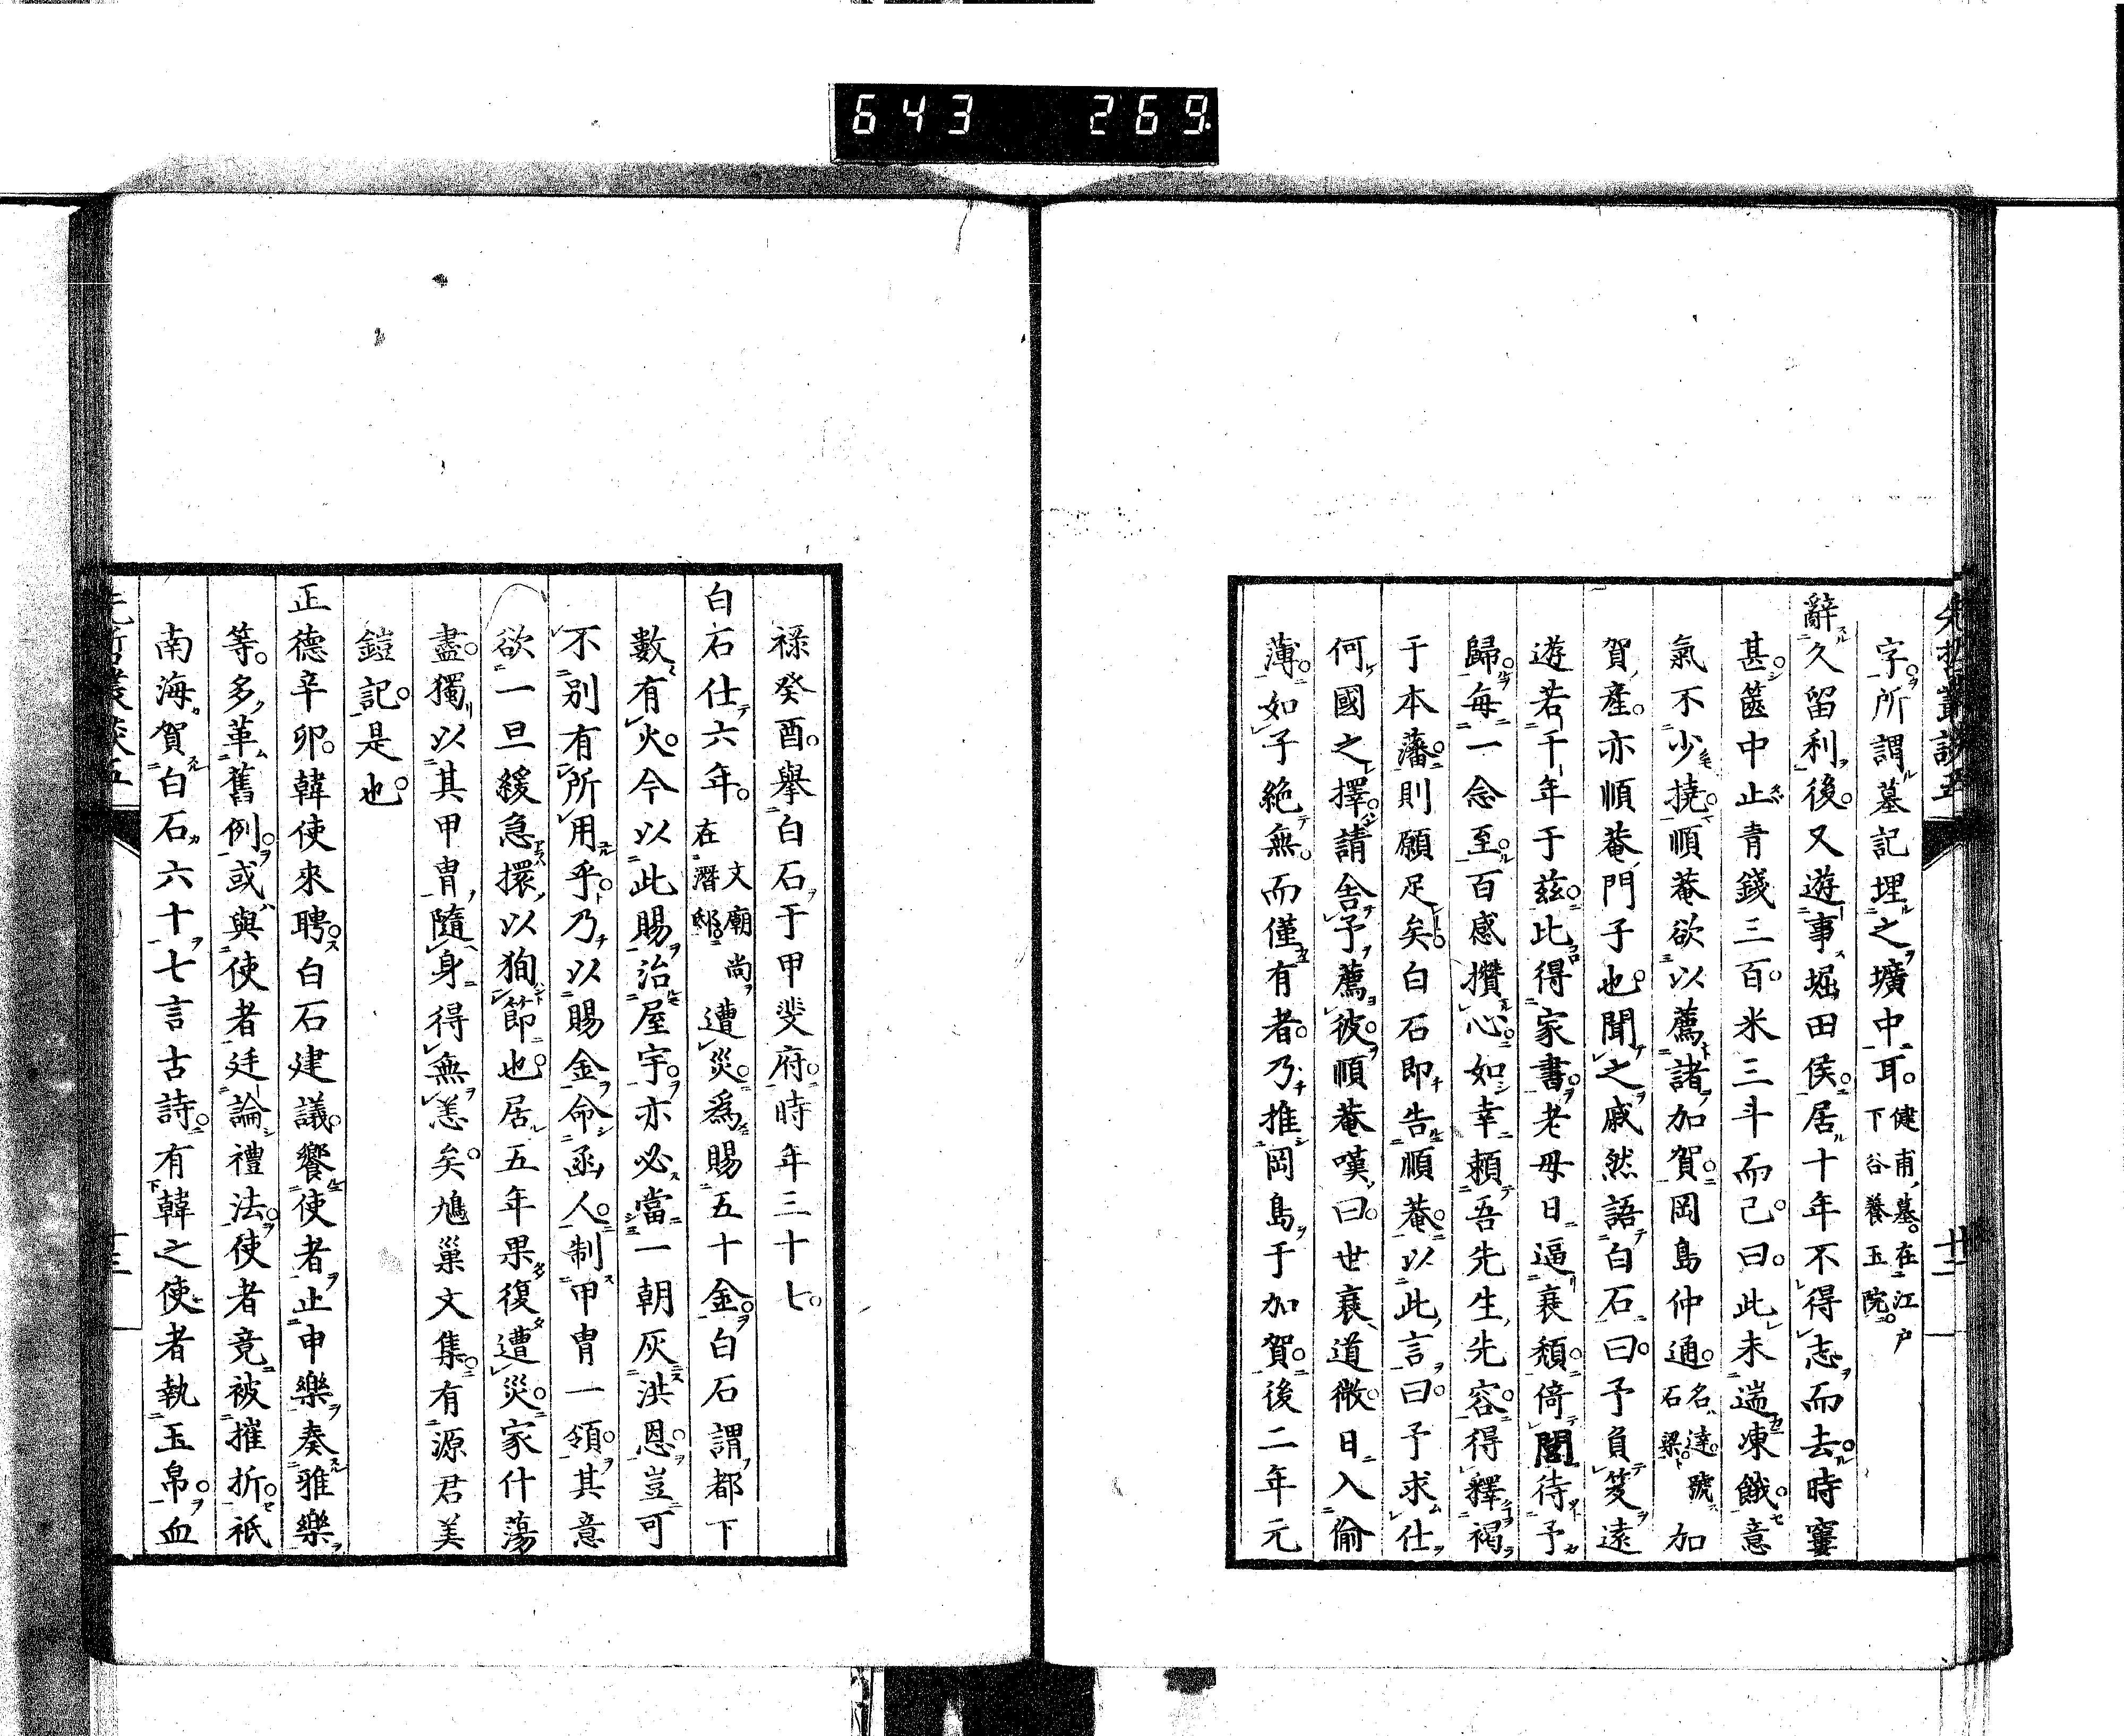 643 269.
先哲叢談五
廿二
字所謂墓記埋之壙中耳健甫墓在江戶下谷養玉院
辭久留利後又遊事堀田侯居十年不得志而去時窶
甚篋中止青錢三百米三斗而已曰此未遄凍餓意
氣不少撓順菴欲以薦諸加賀岡島仲通名達號石梁加
賀產亦順菴門子也聞之戚然語白石曰予負笈遠
遊若干年于茲此得家書老母日逼衰頹倚閭待予
歸每一念至百感攢心如幸賴吾先生先容得釋褐
于本藩則願足矣白石即告順菴以此言曰予求仕
何國之擇請舍予薦彼順菴嘆曰世衰道微日入偷
薄如子絶無而僅有者乃推岡島于加賀後二年元
祿癸酉擧白石于甲斐府時年三十七
白石仕六年文廟尚在潛邸遭災爲賜五十金白石謂都下
數有火今以此賜治屋宇亦必當一朝灰洪恩豈可
不別有所用乎乃以賜金命函人制甲冑一領其意
欲一旦緩急擐以狥節也居五年果復遭災家什蕩
盡獨以其甲冑隨身得無恙矣鳩巢文集有源君美
鎧記是也
正德辛卯韓使來聘白石建議饗使者止申樂奏雅樂
等多革舊例或與使者廷論禮法使者竟被摧折祇
南海賀白石六十七言古詩有韓之使者執玉帛血